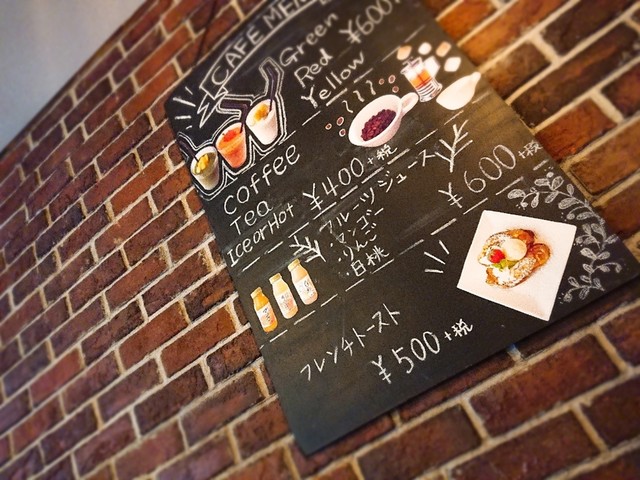 CAFE MENU
Green ¥600
Red
Yellow
coffee
Tea ¥400+税
Ice or Hot
フルーツジュース
・マンゴー ¥600+税
・りんご
・白桃
フレンチトースト
¥500+税